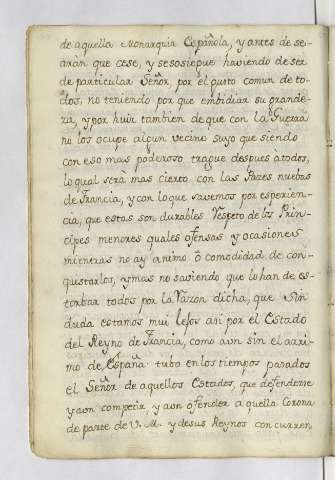 de aquella Monarquia Española, y antes de se-
aràn que cese, y se sosiegue haviendo de ser
de particular Señor, por el gusto comun de to-
dos, no teniendo por que embidiar su grande-
za, y por huir tambien de que con la Guerra
no los ocupe algun vecino suyo que siendo
con eso mas poderoso trague despues atodos,
lo qual serà mas cierto con las Pazes nuebas
de Francia, y con lo que savemos por esperien-
cia, que estas son durables, respeto de los Prin-
cipes menores quales ofensas y ocasiones
mientras no ay animo ò comodidad de con-
quistarlos, y mas no saviendo que lo han de es-
torbar todos por la razon dicha, que sin
duda estamos mui lejos asi por el Estado
del Reyno de Francia, como aun sin el arri-
mo de España tubo en los tiempos pasados
el Señor de aquellos Estados, que defenderse
y aun competir y aun ofender a quella Corona
de parte de V. M. y de sus Reynos concurren